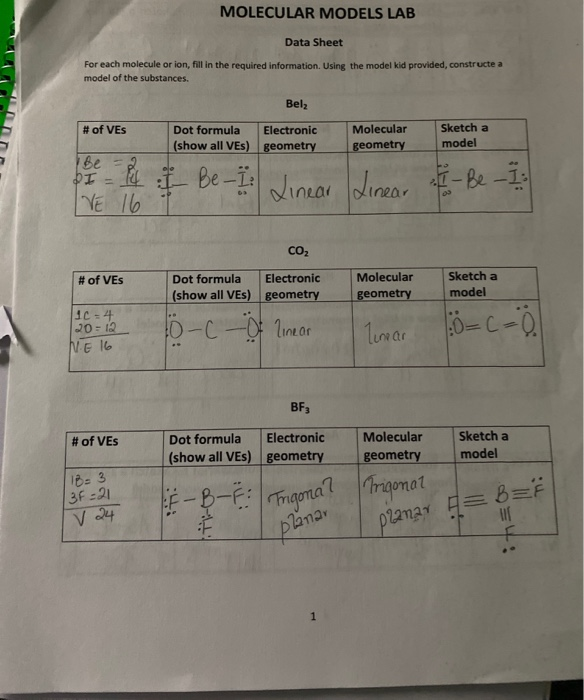 MOLECULAR MODELS LAB
Data Sheet
For each molecule or ion, fill in the required information. Using the model kid provided, constructe a
model of the substances.
BeI₂
# of VEs Dot formula (show all VEs) Electronic geometry Molecular geometry Sketch a model
1Be = 2
2I = 14
VE 16
:I - Be - I:
Linear
Linear
:I - Be - I:
CO₂
# of VEs Dot formula (show all VEs) Electronic geometry Molecular geometry Sketch a model
1C = 4
2O = 12
VE 16
:O - C - O:
linear
linear
:O = C = O
BF₃
# of VEs Dot formula (show all VEs) Electronic geometry Molecular geometry Sketch a model
1B = 3
3F = 21
V 24
:F - B - F:
:F
Trigonal
planar
Trigonal
planar
F ≡ B ≡ F
F
1